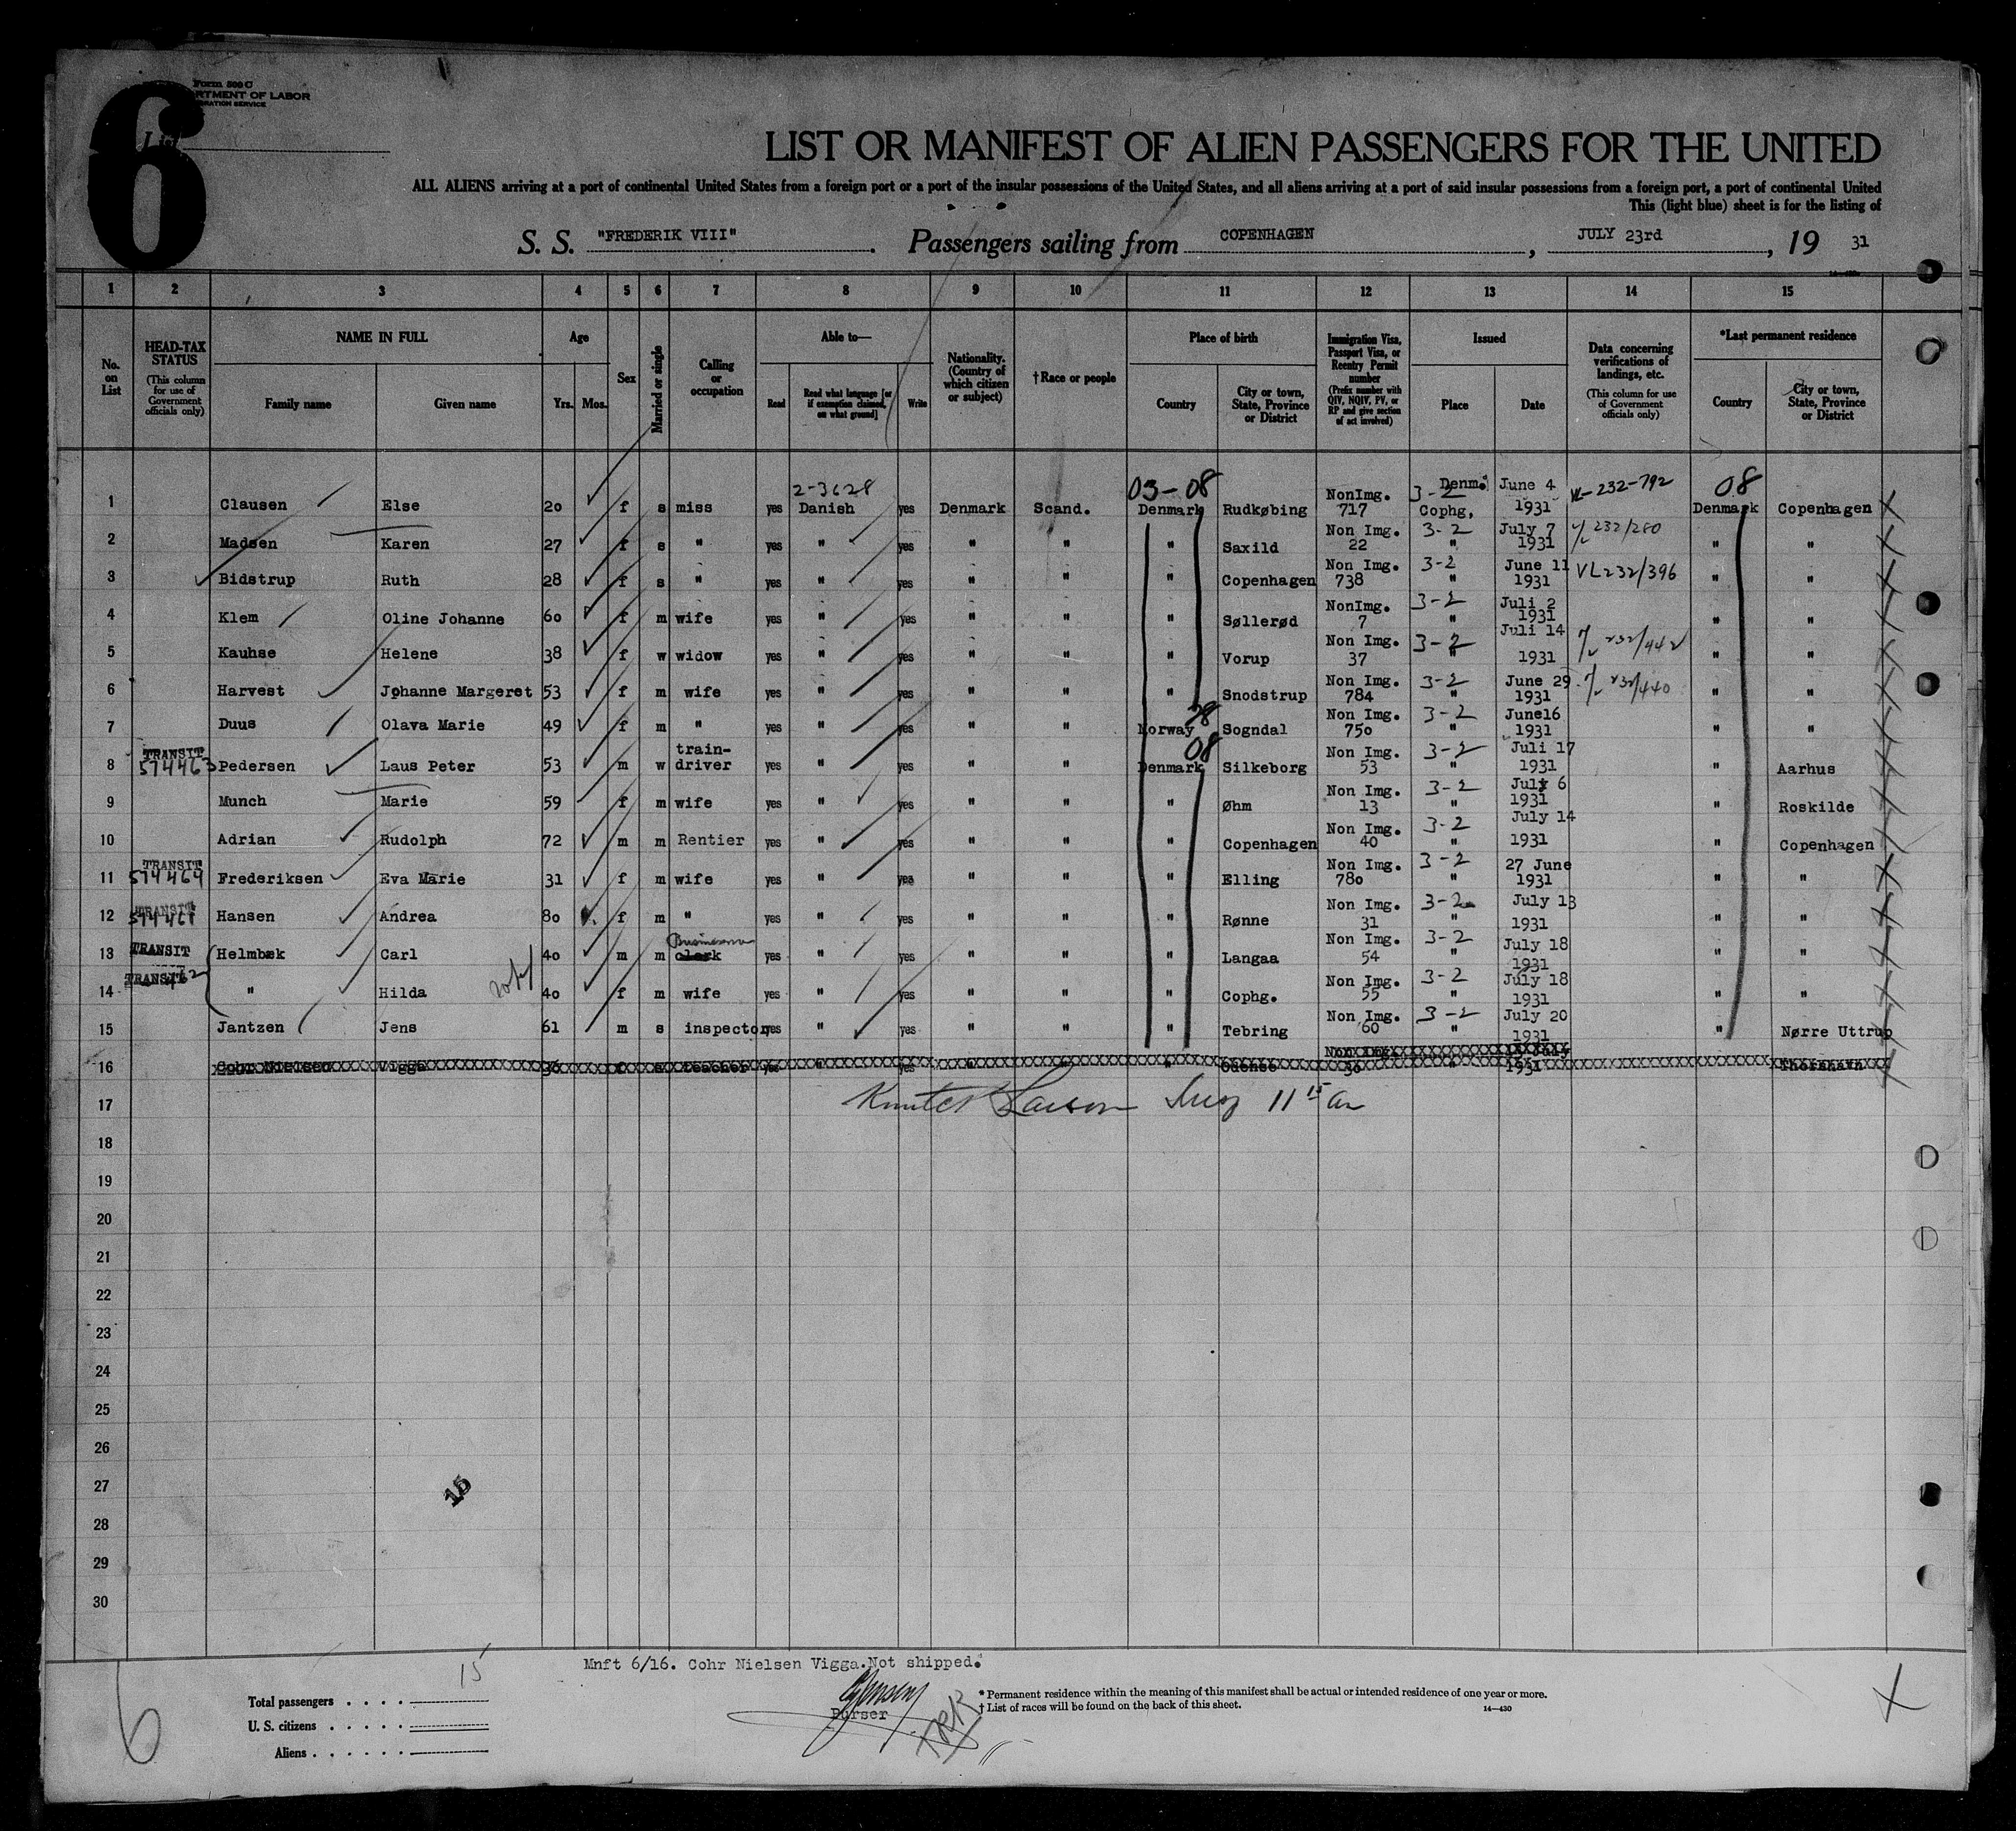 6
Form 500 C
RTMENT OF LABOR
RATION SERVICE
List
LIST OR MANIFEST OF ALIEN PASSENGERS FOR THE UNITED
ALL ALIENS arriving at a port of continental United States from a foreign port or a port of the insular possessions of the United States, and all aliens arriving at a port of said insular possessions from a foreign port, a port of continental United
This (light blue) sheet is for the listing of
S. S. "FREDERIK VIII". Passengers sailing from COPENHAGEN, JULY 23rd, 19 31
1 2 3 4 5 6 7 8 9 10 11 12 13 14 15
No. on List
HEAD-TAX STATUS (This column for use of Government officials only)
NAME IN FULL
Family name Given name
Age
Yrs. Mos.
Sex
Married or single
Calling or occupation
Able to—
Read Read what language [or if exemption claimed, on what ground] Write
Nationality. (Country of which citizen or subject)
†Race or people
Place of birth
Country City or town, State, Province or District
Immigration Visa, Passport Visa, or Reentry Permit number (Prefix number with QIV, NQIV, PV, or RP and give section of act involved)
Issued
Place Date
Data concerning verifications of landings, etc. (This column for use of Government officials only)
*Last permanent residence
Country City or town, State, Province or District
2-3628 03-08 08
1 Clausen Else 20 f s miss yes Danish yes Denmark Scand. Denmark Rudkøbing NonImg. 717 3-2 Denm. Cophg, June 4 1931 VL-232-792 Denmark Copenhagen X
2 Madsen Karen 27 f s " yes " yes " " " Saxild Non Img. 22 3-2 " July 7 1931 232/280 " " X
3 Bidstrup Ruth 28 f s " yes " yes " " " Copenhagen Non Img. 738 3-2 " June 11 1931 VL232/396 " " X
4 Klem Oline Johanne 60 f m wife yes " yes " " " Søllerød NonImg. 7 3-2 " Juli 2 1931 " " X
5 Kauhse Helene 38 f w widow yes " yes " " " Vorup Non Img. 37 3-2 " Juli 14 1931 232/442 " " X
6 Harvest Johanne Margeret 53 f m wife yes " yes " " " Snodstrup Non Img. 784 3-2 " June 29 1931 232/440 " " X
7 Duus Olava Marie 49 f m " yes " yes " " Norway 28 Sogndal Non Img. 750 3-2 " June16 1931 " " X
8 TRANSIT 574463 Pedersen Laus Peter 53 m w train-driver yes " yes " " Denmark 08 Silkeborg Non Img. 53 3-2 " Juli 17 1931 " Aarhus X
9 Munch Marie 59 f m wife yes " yes " " " Øhm Non Img. 13 3-2 " July 6 1931 " Roskilde X
10 Adrian Rudolph 72 m m Rentier yes " yes " " " Copenhagen Non Img. 40 3-2 " July 14 1931 " Copenhagen X
11 TRANSIT 574464 Frederiksen Eva Marie 31 f m wife yes " yes " " " Elling Non Img. 780 3-2 " 27 June 1931 " " X
12 TRANSIT 574461 Hansen Andrea 80 f m " yes " yes " " " Rønne Non Img. 31 3-2 " July 13 1931 " " X
13 TRANSIT Helmbæk Carl 40 m m clerk yes " yes " " " Langaa Non Img. 54 3-2 " July 18 1931 " " X
14 TRANSIT " Hilda 40 f m wife yes " yes " " " Cophg. Non Img. 55 3-2 " July 18 1931 " " X
15 Jantzen Jens 61 m s inspector yes " yes " " " Tebring Non Img. 60 3-2 " July 20 1931 " Nørre Uttrup X
16 Cohr Nielsen Vigga 36 f s teacher yes " yes " " " Odense Non Img. 30 " July 1931 Thorshavn
17 11 15 am
18
19
20
21
22
23
24
25
26
27
28
29
30
15
Mnft 6/16. Cohr Nielsen Vigga.Not shipped.
6
15
Total passengers
U. S. citizens
Aliens
Purser
* Permanent residence within the meaning of this manifest shall be actual or intended residence of one year or more.
† List of races will be found on the back of this sheet.
14—430
X